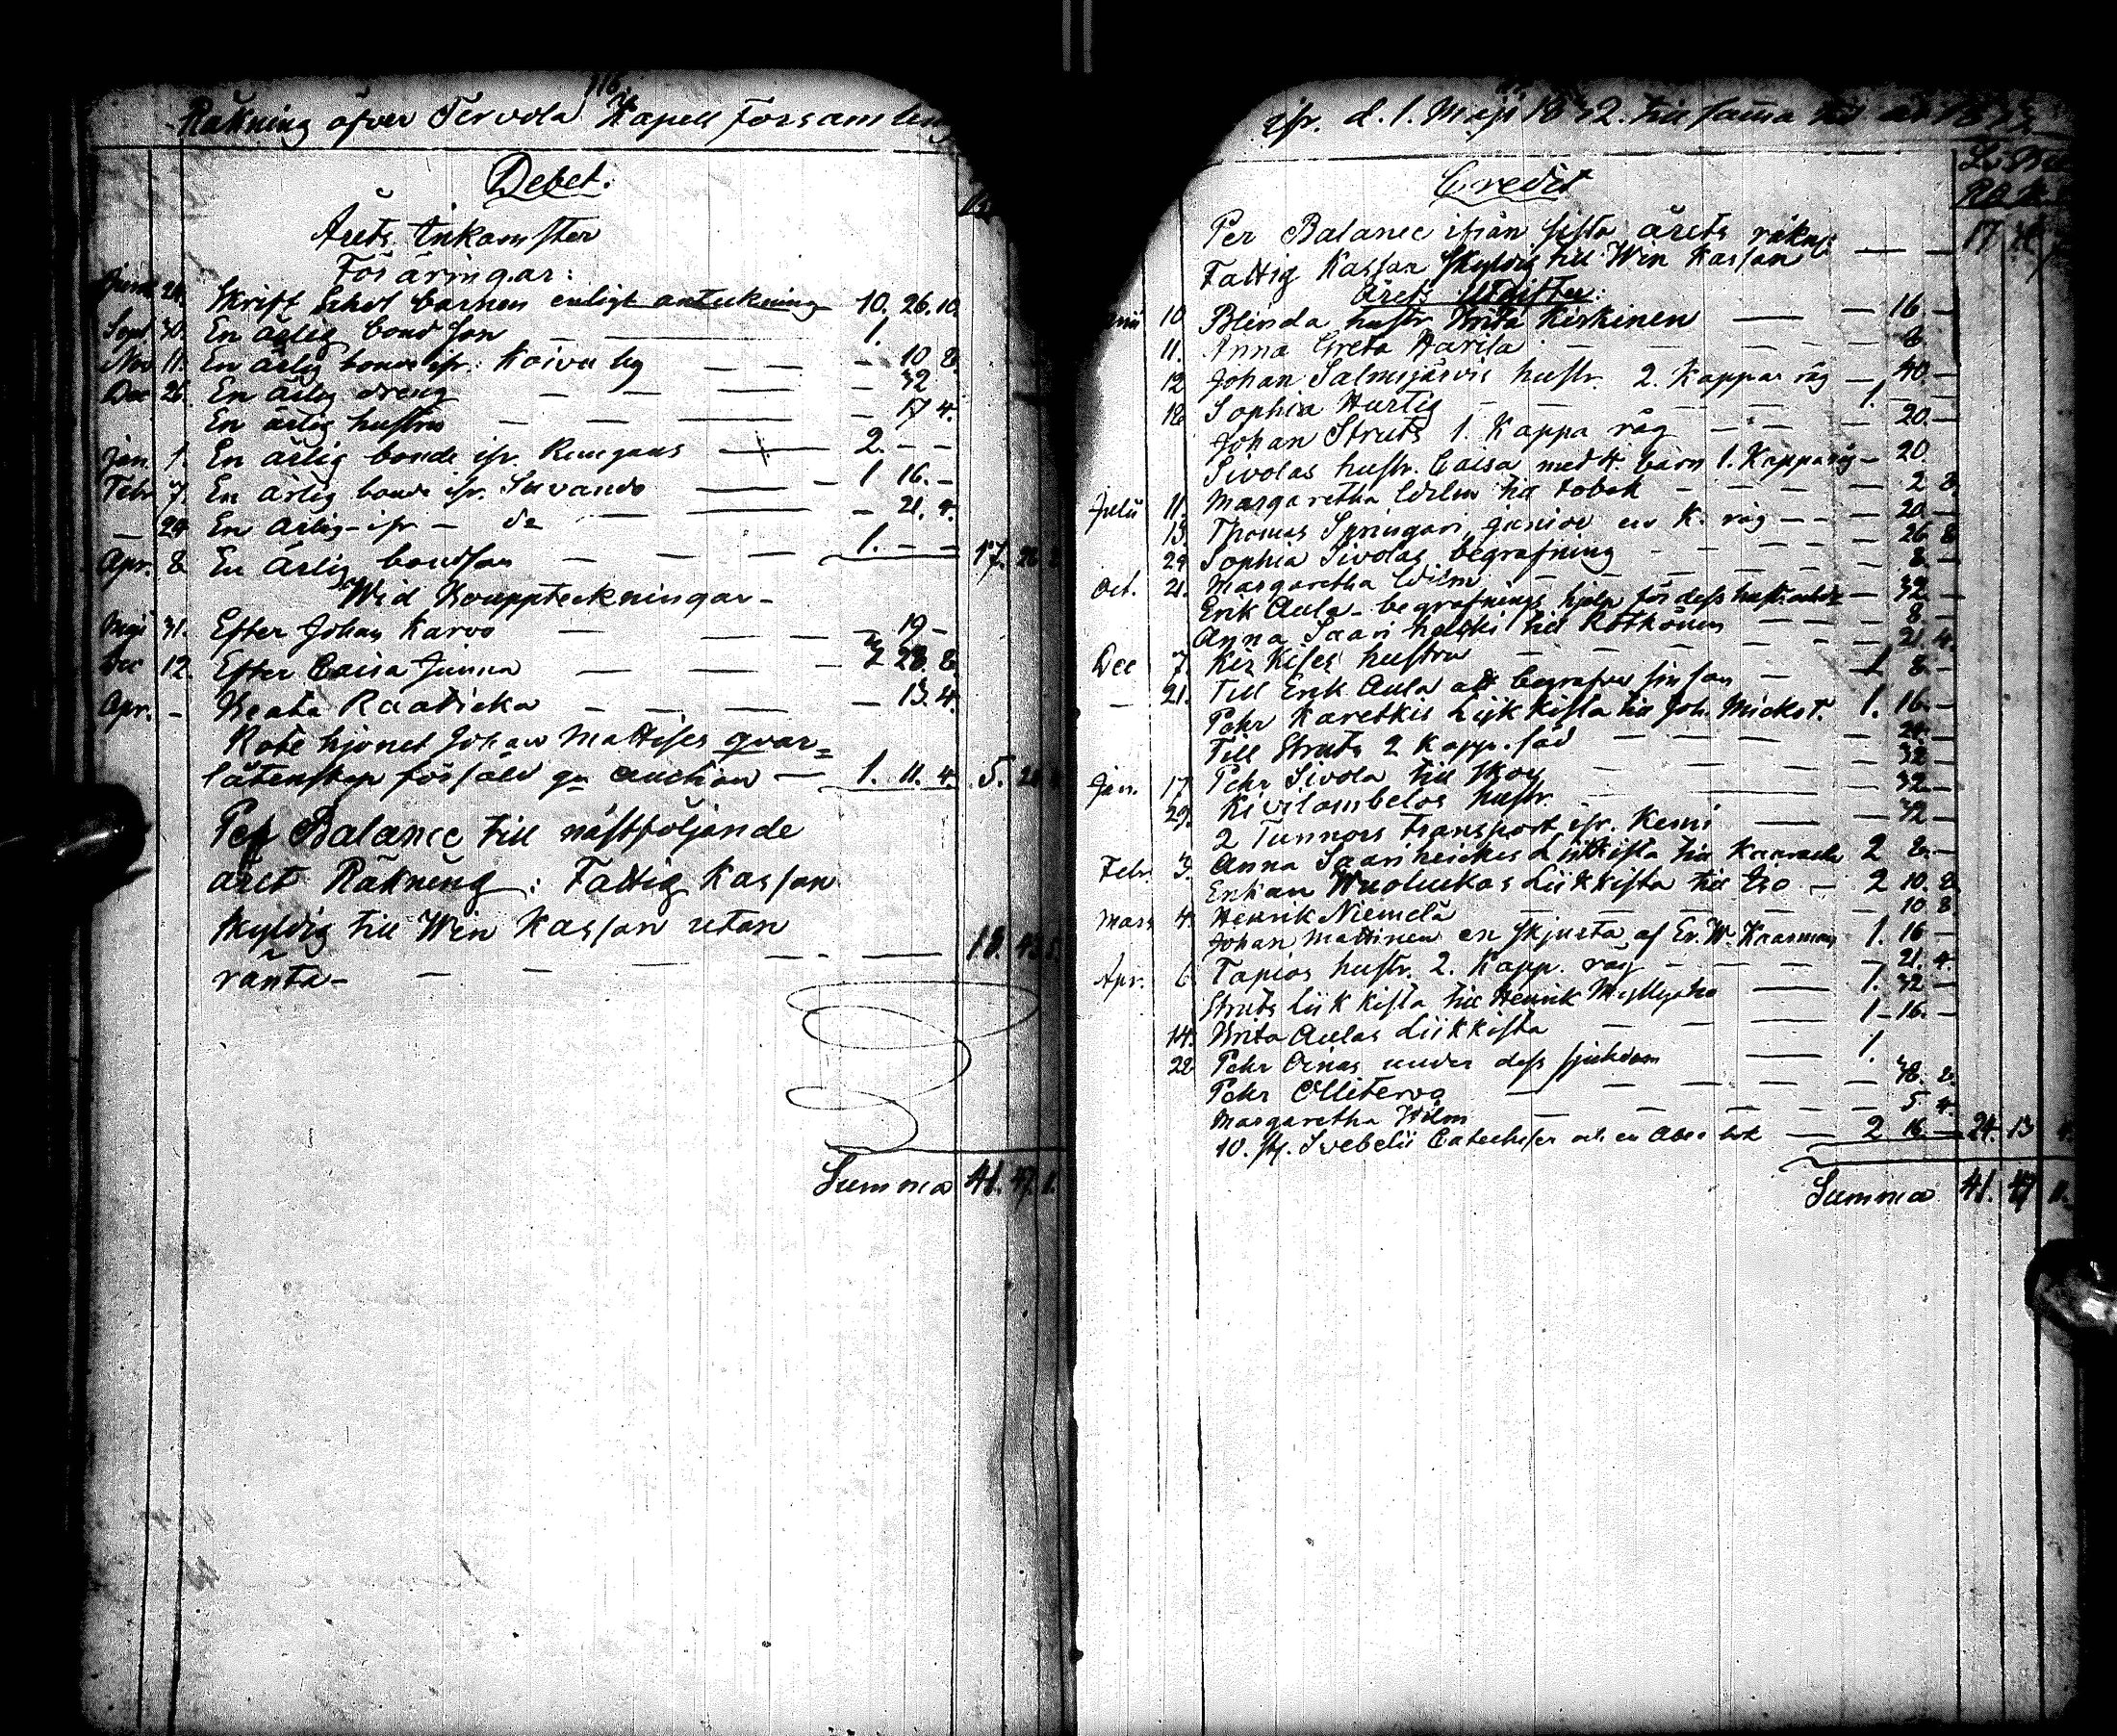 116.
Räkning öfver Tervola Kapell Församling
Debet.
Årets Inkomster
Föräringar:
Junii 24. Skrift Schol barnen enligt anteckning 10. 26. 10.
Sept 30. En ärlig bond son 1.
Nov 11. En ärlig bonde ifr. Koivu by 10 8.
Dec 26. En ärlig dreng 32
En ärlig hustru 17 4.
Jan. 1. En ärlig bonde ifr. 2. - -
Febr 7. En ärlig bonde ifr. Suvando 1 16. -
- 24 En ärlig - ifr - do 21. 4.
Apr. 8 En ärlig bondson 1. - - 17.
Wid Bouppteckningar -
Maji 31. Efter Johan Karvo 19 -
Dec 12. Efter Caisa Junna 28. 8.
Apr. - Beata Raatikka 13. 4.
Rote hjonet Johan Mattises qvar=
låtenskap försåld gm auction - 1. 11. 4. 5.
Per Balance till nästföljande
året Räkning: Fattig Kassan
skyldig till Win Kassan utan
ränta - 18.
Summa 41. 47. 1.
ifr. d. 1. Maji 1832. till samma tid
Credit
Per Balance ifrån sista årets räkng 17.
Fattig Kassan skyldig till Win Kassan
Årets Utgifter:
10 Blinda hustr Brita Kiskinen 16. -
11. Anna Greta Harila 8
12 Johan Salmijärvis hustr. 2. Kappar råg 40. -
18 Sophia Hurtig 1. -
Johan Struts 1. Kappa råg 20. -
Sivolas hustr. Caisa med 4. barn 1. Kappa råg - 20
Julii 11. Margaretha Wilm till tobak 2 8.
13. Thomas Springari, junior en K. råg 20 -
29 Sophia Sivolas begrafning 26 8
Oct. 21. Margaretha Wilm 8. -
Erik Aula - begrafnings hjelp för dess hustr. 32 -
Anna Saari till 8. -
Dec 7. hustru 21. 4.
- 21. Till Erik Aula att begrafva sin son 1 8. -
Pehr Karetkis Lijkkista till Joh. 1. 16. -
Till Struts 2 Kapp. säd 24. -
Jan. 17 Pehr Sivola till skor 32 -
29. Kivilombolos hustr. 32 -
2 Tunnors transport ifr. Kemi 32 -
Febr. 3. Anna Lijkkista till 2 8. -
Enkan Wuolukas Liikkista till Iso 2 10. 8
Mars 4. Henrik Niemelä 10 8
Johan Mattinen en skjorta af 1. 16 -
Apr. 6 Tapios hustr. 2. Kapp. råg 21. 4.
Struts Liikkista till Henrik 1. 32 -
14. Brita Aulas Liikkista 1 - 16. -
22 Pehr Oinas under dess sjukdom 1.
Pehr Ollitervo 38. 8.
Margaretha Wilm 5. 4.
10. st. Svebelii Catecheser och en Abec bok 2 16 - 24. 13
Summa 41. 47